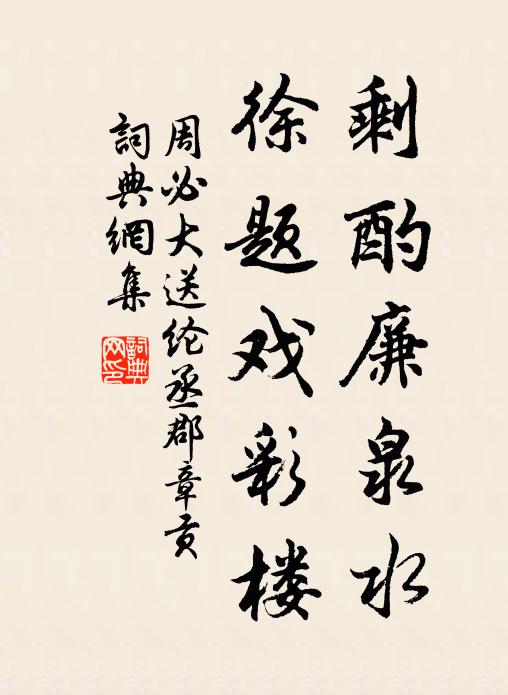 剩酌廉泉水
徐题戏彩楼
周必大送纶丞郡章贡
詞典網集
詞典
网印